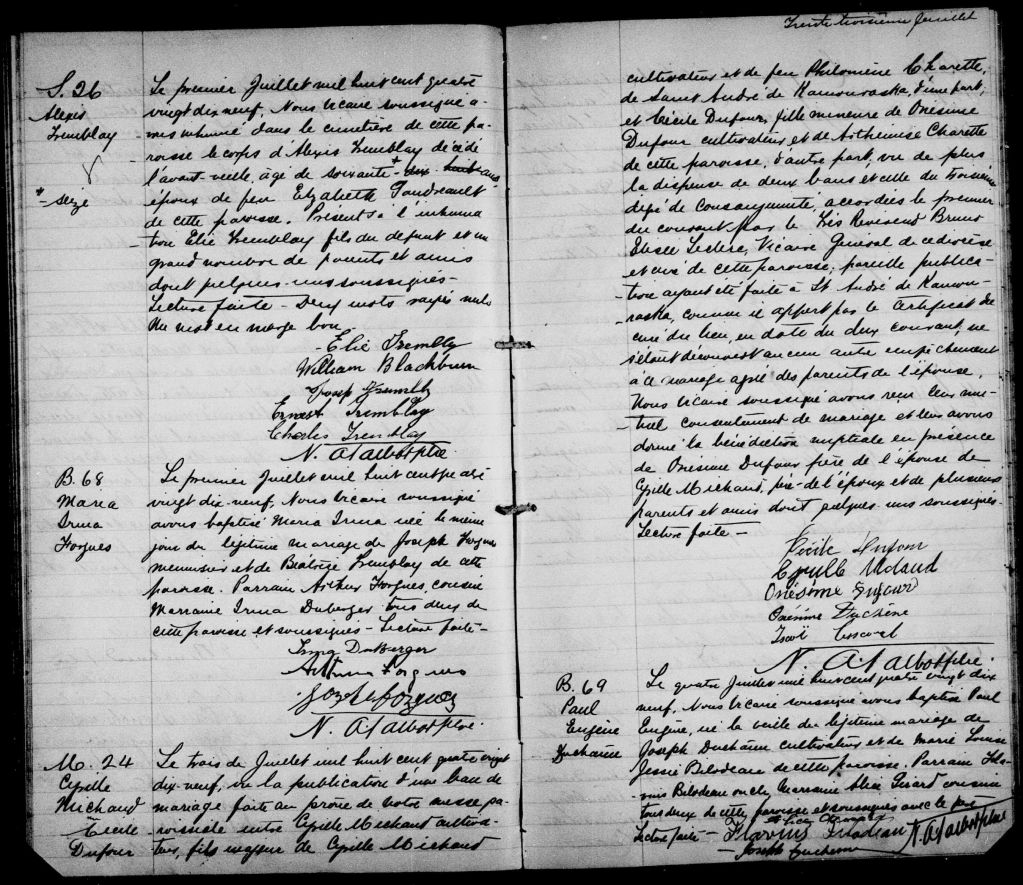 S. 26
Alexis
Tremblay
+ seize
Le premier Juillet mil huit cent quatre
vingt dix neuf, Nous vicaire soussigné a-
vons inhumé dans le cimetière de cette pa-
roisse le corps d'Alexis Tremblay décédé
l'avant-veille, âgé de soixante + dix huit ans
époux de feu Elizabeth Goudreault
de cette paroisse. Présents à l'inhuma
tion Elie Tremblay fils du défunt et un
grand nombre de parents et amis
dont quelques-uns soussignés -
Lecture faite - Deux mots rayés nuls
Un mot en marge bon.
Elie Trembly
William Blackburn
Joseph Trembly
Ernest Tremblay
Charles Tremblay
N. A. Talbot ptre.
B. 68
Maria
Irma
Forgues
Le premier Juillet mil huit cent quatre
vingt dix-neuf, Nous vicaire soussigné
avons baptisé Maria Irma née le même
jour du légitime mariage de Joseph Forgues
menuisier et de Béatrice Tremblay de cette
paroisse. Parrain Arthur Forgues, cousin
Marraine Irma Duberger tous deux de
cette paroisse et soussignés - Lecture faite -
Irma DuBerger
Arthur Forgues
Joseph Forgues
N. A. Talbot ptre.
M. 24
Cyrille
Michaud
Cécile
Dufour
Le trois de Juillet mil huit cent quatre vingt
dix-neuf, vu la publication d'un ban de
mariage faite au prône de notre messe pa-
roissiale entre Cyrille Michaud cultiva-
teur, fils majeur de Cyrille Michaud
Trente troisième feuillet
cultivateur et de feu Philomène Charette,
de Saint André de Kamouraska, d'une part;
et Cécile Dufour, fille mineure de Onésime
Dufour cultivateur et de Arthémise Charette
de cette paroisse, d'autre part, vu de plus
la dispense de deux bans et celle du troisième
degré de consanguinité, accordées le premier
du courant par le Très Révérend Bruno
Elisée Leclerc, Vicaire Général de ce diocèse
et curé de cette paroisse; pareille publica-
tion ayant été faite à St André de Kamou-
raska, comme il appert par le certificat du
curé du lieu, en date du deux courant, ne
s'étant découvert aucun autre empêchement
à ce mariage agréé des parents de l'épouse,
Nous vicaire soussigné avons reçu leur mu-
tuel consentement de mariage et leur avons
donné la bénédiction nuptiale en présence
de Onésime Dufour père de l'épouse de
Cyrille Michaud, père de l'époux et de plusieurs
parents et amis dont quelques uns soussignés -
Lecture faite -
Cécile Dufour
Cyrille Michaud
Onésime Dufour
Onésime Duchène
N. A. Talbot ptre.
B. 69
Paul
Eugène
Duchaine
Le quatre Juillet mil huit cent quatre vingt dix
neuf, Nous vicaire soussigné avons baptisé Paul
Eugène, né la veille du légitime mariage de
Joseph Duchaine cultivateur et de Marie Louise
Jessie Bilodeau de cette paroisse. Parrain Fla-
vius Bilodeau oncle, Marraine Alice Girard cousine
tous deux de cette paroisse et soussignés avec le père
Lecture faite - Flavius Bilodeau N. A. Talbot ptre
Joseph Duchesne